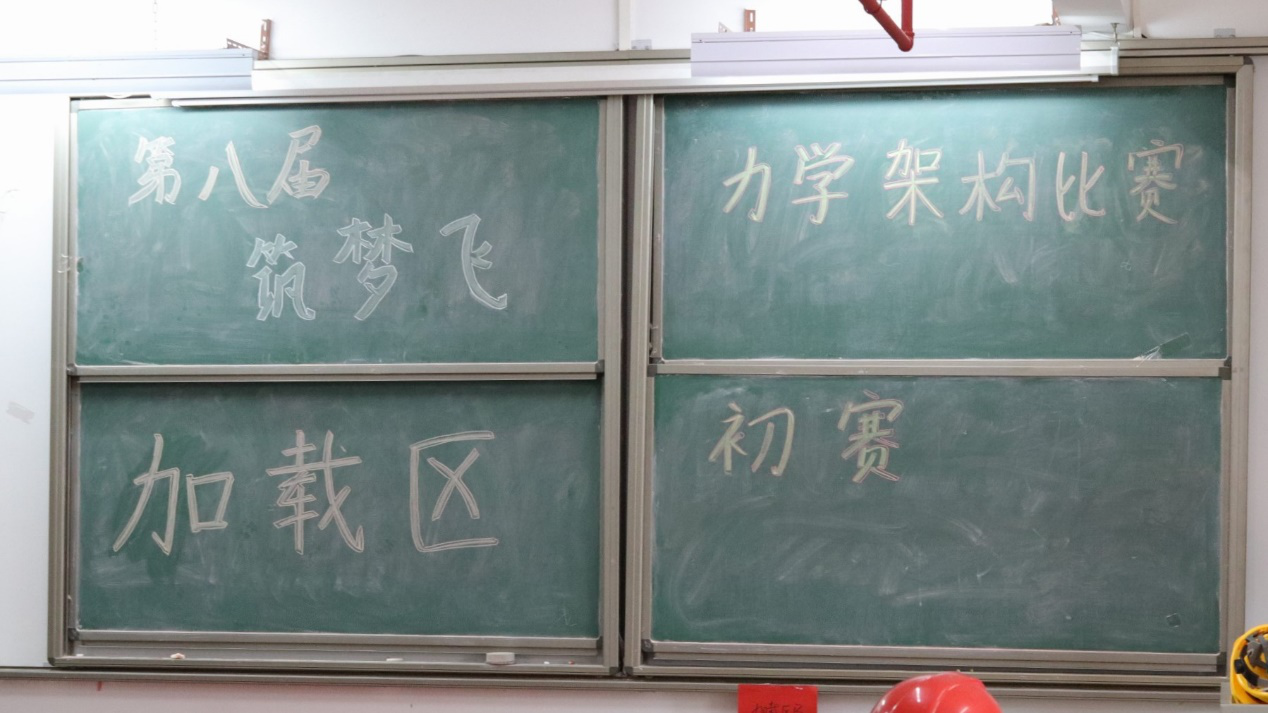 第八届
筑梦飞
力学架构比赛
加载区
初赛